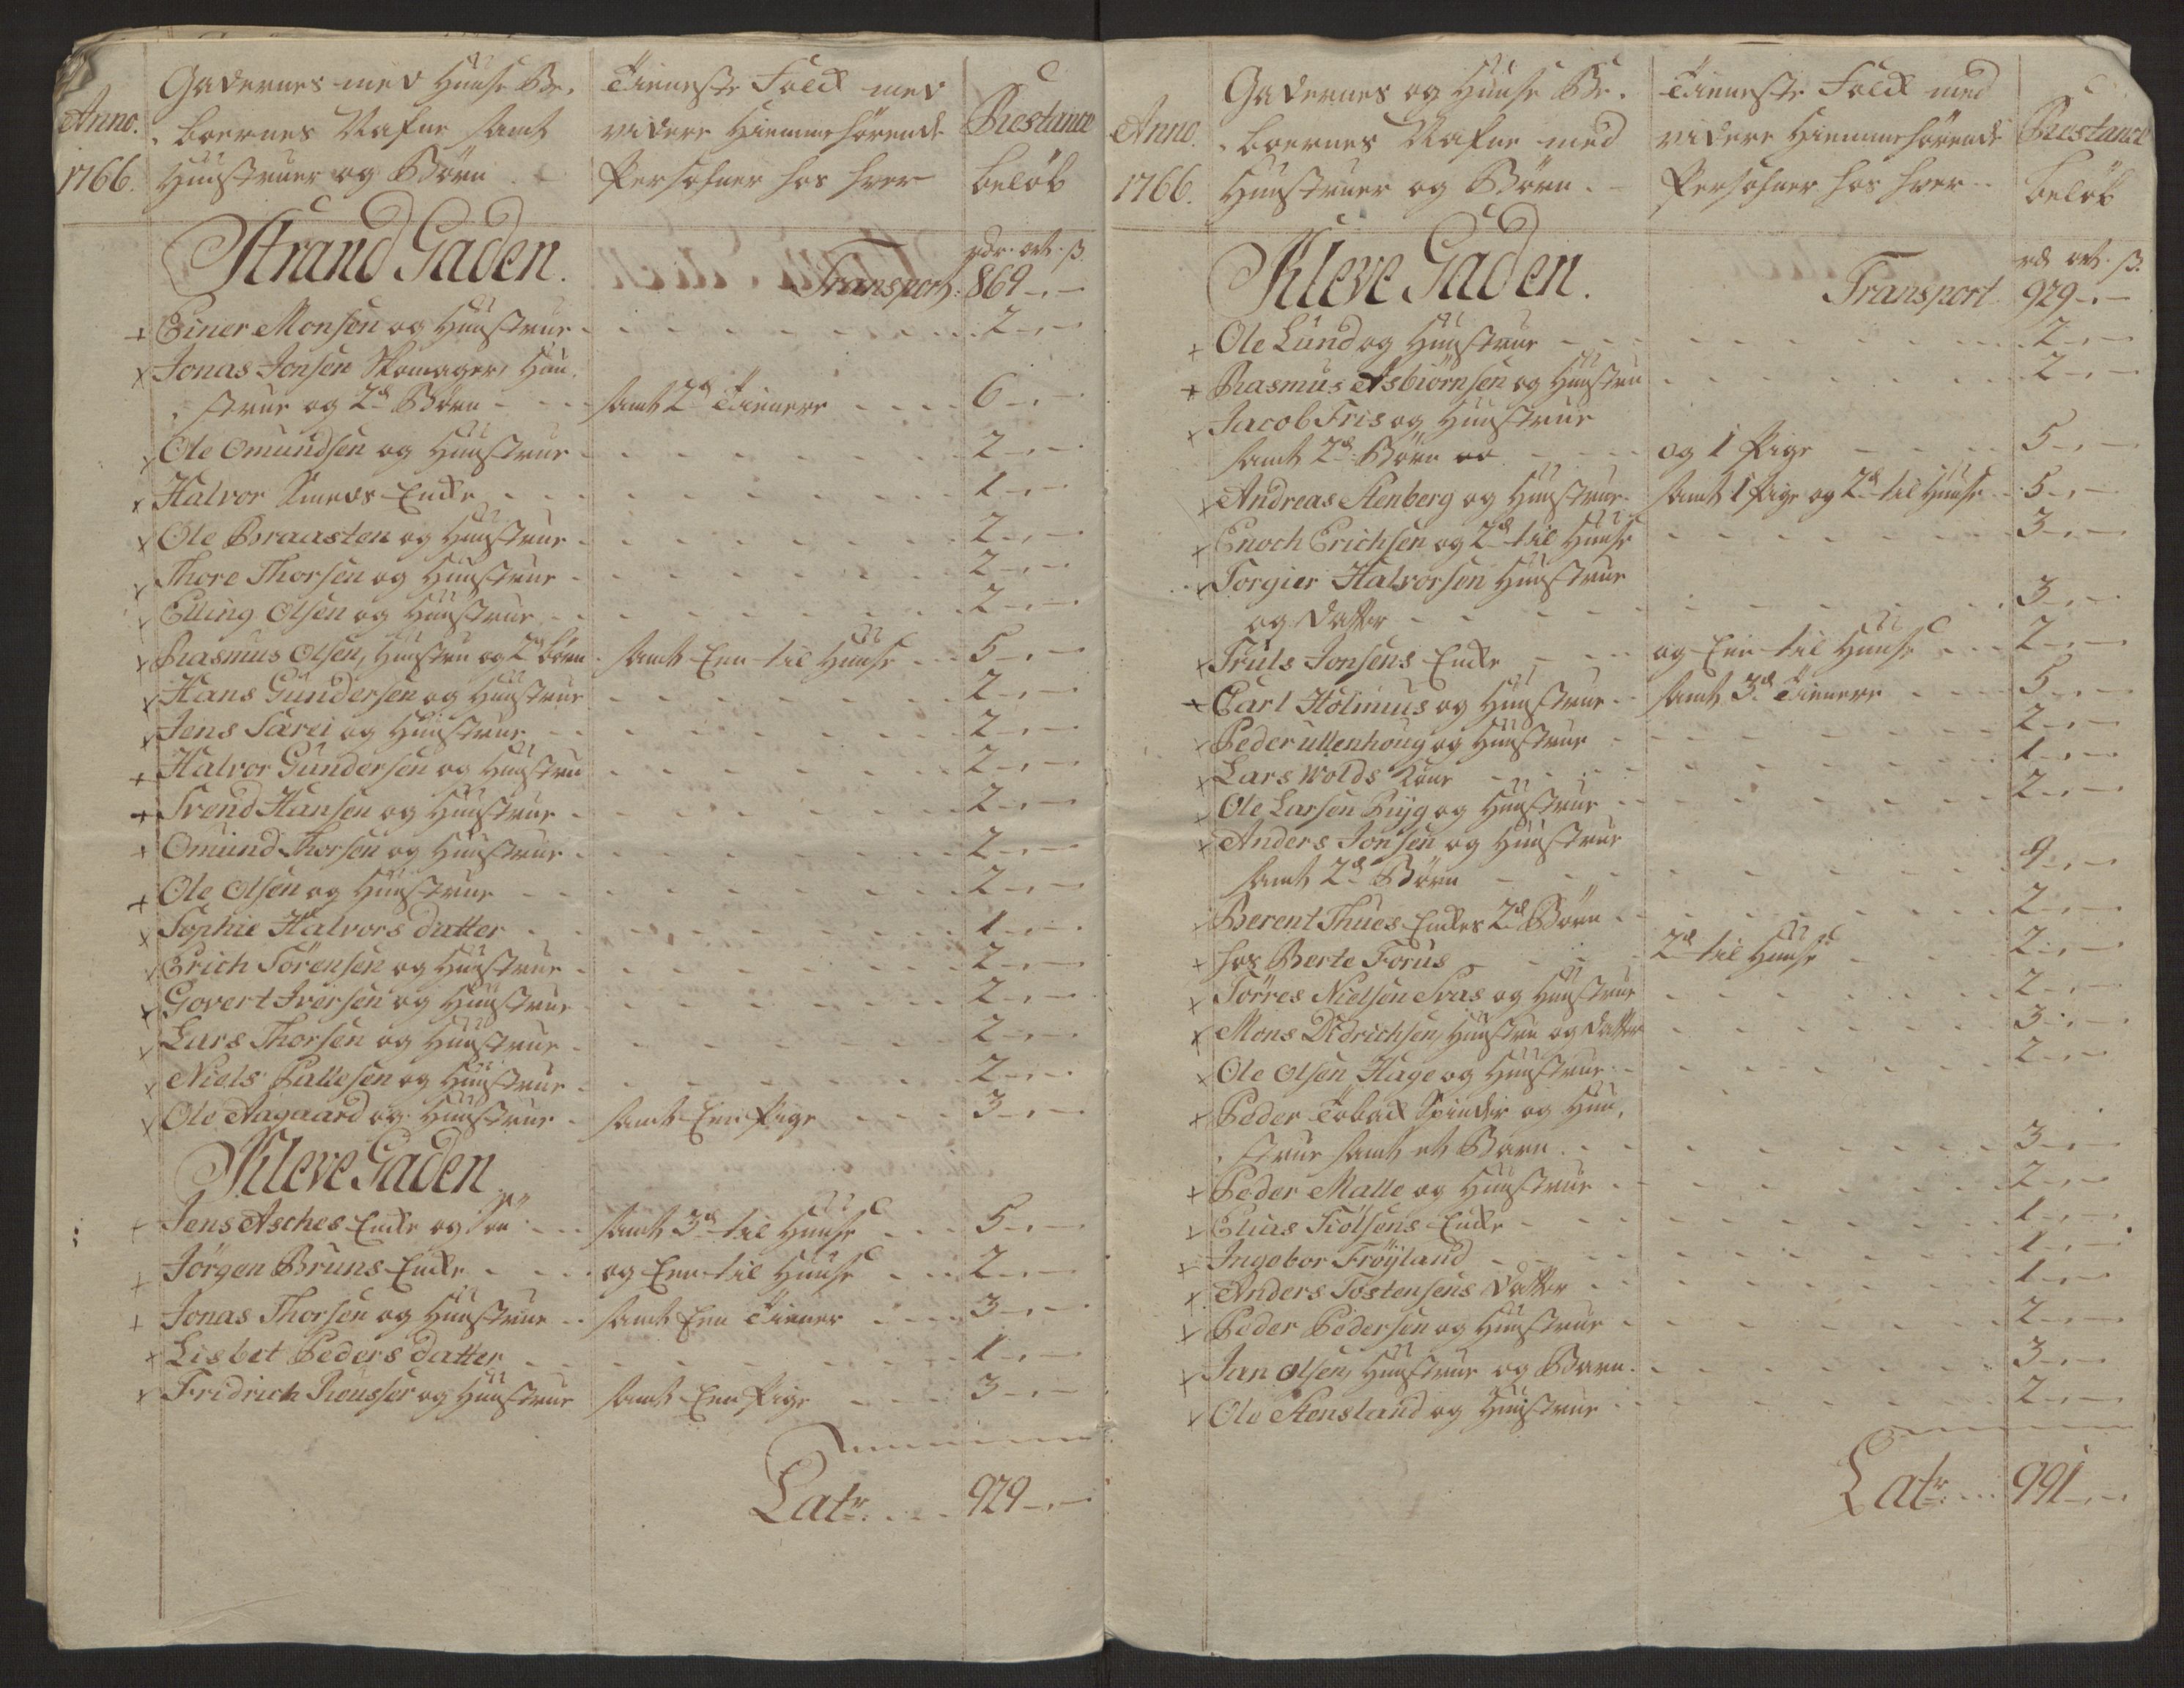 Anno.
1766.
Gadernes med Huuse Be,
,boernes Nafne samt
Hustruer og Börn
Tieneste Folck med
videre Hiemmehörende
Persohner hos hver
Restance
beløb
Strand Gaden.
rdr. ort. ß.
Transport: 869 -,-
+ Einer Monsen og Huustrue - 2 -,-
x Jonas Jonsen Skomager, Huu,
,strue og 2de Börn - - - samt 2de Tienere - - - 6 -,-
x Ole Omundsen og Huustrue - 2 -,-
x Halvor Smeds Encke - - - 1 -,-
x Ole Braasten og Huustrue - 2 -,-
x Thore Thorsen og Huustrue - 2 -,-
x Elling Olsen og Huustrue - 2 -,-
x Rasmus Olsen, Huustru og 2de börn - samt Een til Huuse - - 5 -,-
x Hans Gundersen og Huustrue - 2 -,-
x Jens Sarei og Huustrue - 2 -,-
+ Halvor Gundersen og Huustru - 2 -,-
+ Svend Hansen og Huustrue - 2 -,-
+ Omund Thorsen og Huustrue - 2 -,-
+ Ole Olsen og Huustrue - 2 -,-
x Sophie Halvors datter - - 1 -,-
x Erich Sörensen og Huustrue - 2 -,-
x Govert Iversen og Huustrue - 2 -,-
x Lars Thorsen og Huustrue - 2 -,-
x Niels Pallesen og Huustrue - 2 -,-
x Ole Aagaard og Huustrue - samt Een Pige - - - 3 -,-
Kleve Gaden
+ Jens Asches Encke og Sön - - samt 3de til Huuse - - 5 -,-
+ Jörgen Bruns Encke - - - og Een til Huuse - - - 2 -,-
+ Jonas Thorsen og Huustrue - - samt Een Tiener - - - 3 -,-
x Lisbet Peders datter - - 1 -,-
x Fridrich Reusser og Huustrue samt Een Pige - - - 3 -,-
Latr. . . . 929 -,-
Anno.
1766.
Gadernes og Huuse Be,
,boernes Nafne med
Hustruer og Börn -
Tieneste Folck med
videre Hiemmehörende
Persohner hos hver -
Restance
beløb
Kleve Gaden.
rd ort. ß.
Transport 929 -,-
x Ole Lund og Huustrue - - - 2 -,-
+ Rasmus Asbiörnsen og Huustru - 2 -,-
x Jacob Fris og Huustrue
samt 2de Börn - - - og 1 Pige - - - 5 -,-
x Andreas Stenberg og Huustrue - samt 1 Pige og 2de til Huuse - 5 -,-
x Enoch Erichsen og 2de til Huuse - 3 -,-
x Torgier Halvorsen Huustrue
og Datter - - - 3 -,-
x Truls Jonsens Encke - - - og Een til Huuse - - - 2 -,-
+ Carl Holmius og Huustrue - - samt 3de Tienere - - - 5 -,-
x Peder Ullenhoug og Huustrue - 2 -,-
x Lars Wolds Kone - - - 1 -,-
x Ole Larsen Ryg og Huustrue - - 2 -,-
x Anders Jonsen og Huustrue
samt 2de Börn - - - 4 -,-
x Berent Thues Enckes 2de Börn - - 2 -,-
+ hos Berte Forus - - - 2de til Huuse - - 2 -,-
x Törres Nielsen Svas og Huustrue - 2 -,-
x Mons Didrichsen, Huustru og Datter - 3 -,-
x Ole Olsen Hage og Huustrue - - 2 -,-
x Peder Toback Spinder og Huu,
,strue samt et Barn - - 3 -,-
+ Peder Malle og Huustrue - - 2 -,-
x Elias Tiölsens Encke - - - 1 -,-
x Ingebor Fröyland - - - 1 -,-
x Anders Tostensens Datter - - 1 -,-
x Peder Pedersen og Huustrue - - 2 -,-
x Jan Olsen, Huustrue og Barn - - 3 -,-
x Ole Stensland og Huustrue - - 2 -,-
Latr. . . . 991 -,-